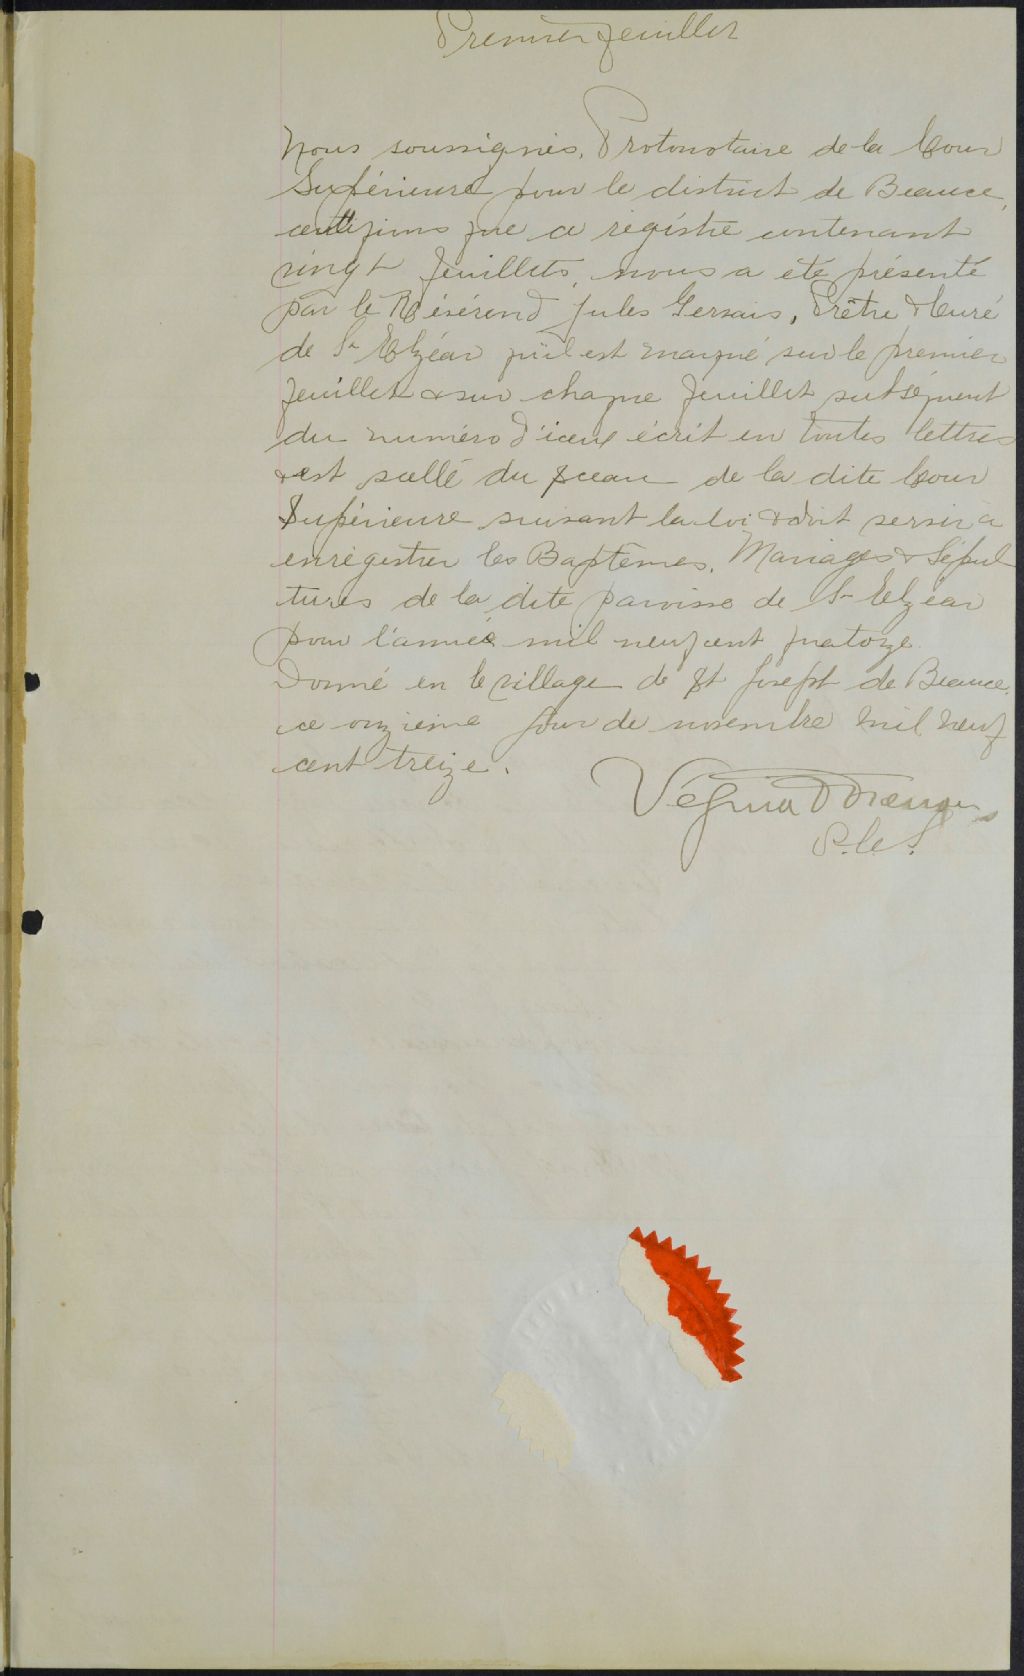 Premier feuillet
Nous soussignés, Protonotaire de la Cour
Supérieure pour le district de Beauce,
certifions que ce régistre contenant
vingt feuillets, nous a été présenté
par le Révérend Jules Gervais, Prêtre & Curé
de St Elzéar qu'il est marqué sur le premier
feuillet & sur chaque feuillet subséquent
du numéro d'iceux écrit en toutes lettres
& est scellé du sceau de la dite Cour
Supérieure suivant la loi & doit servir à
enrégistrer les Baptêmes, Mariages & Sépul
tures de la dite paroisse de St Elzéar
pour l'année mil neuf cent quatorze.
Donné en le village de St Joseph de Beauce,
ce onzième jour de novembre mil neuf
cent treize.
Vézina
P.C.S.